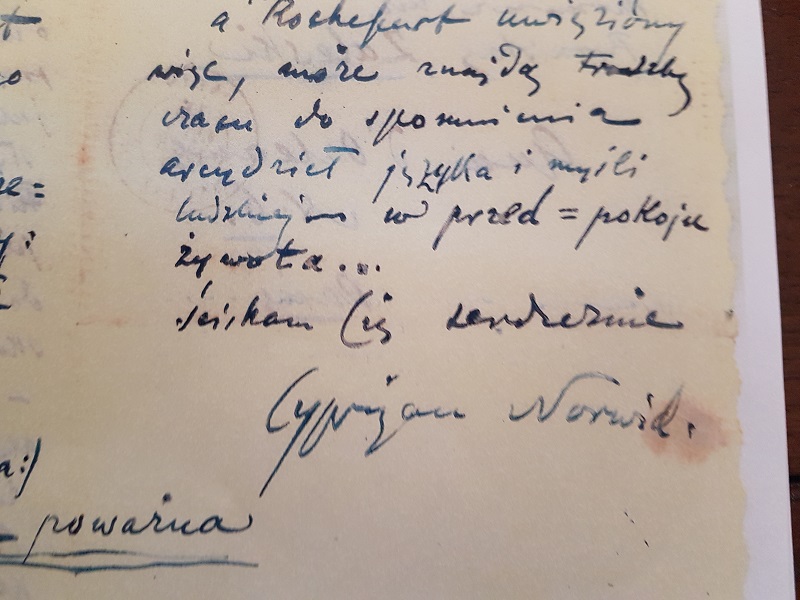 a Rochefort uwięziony
więc, może znajdą
czasu do spomnienia
arcydzieł języka i myśli
ludzkiej w przed=pokoju
żywota...
ściskam Cię serdecznie
Cyprjan Norwid.
a:)
poważna